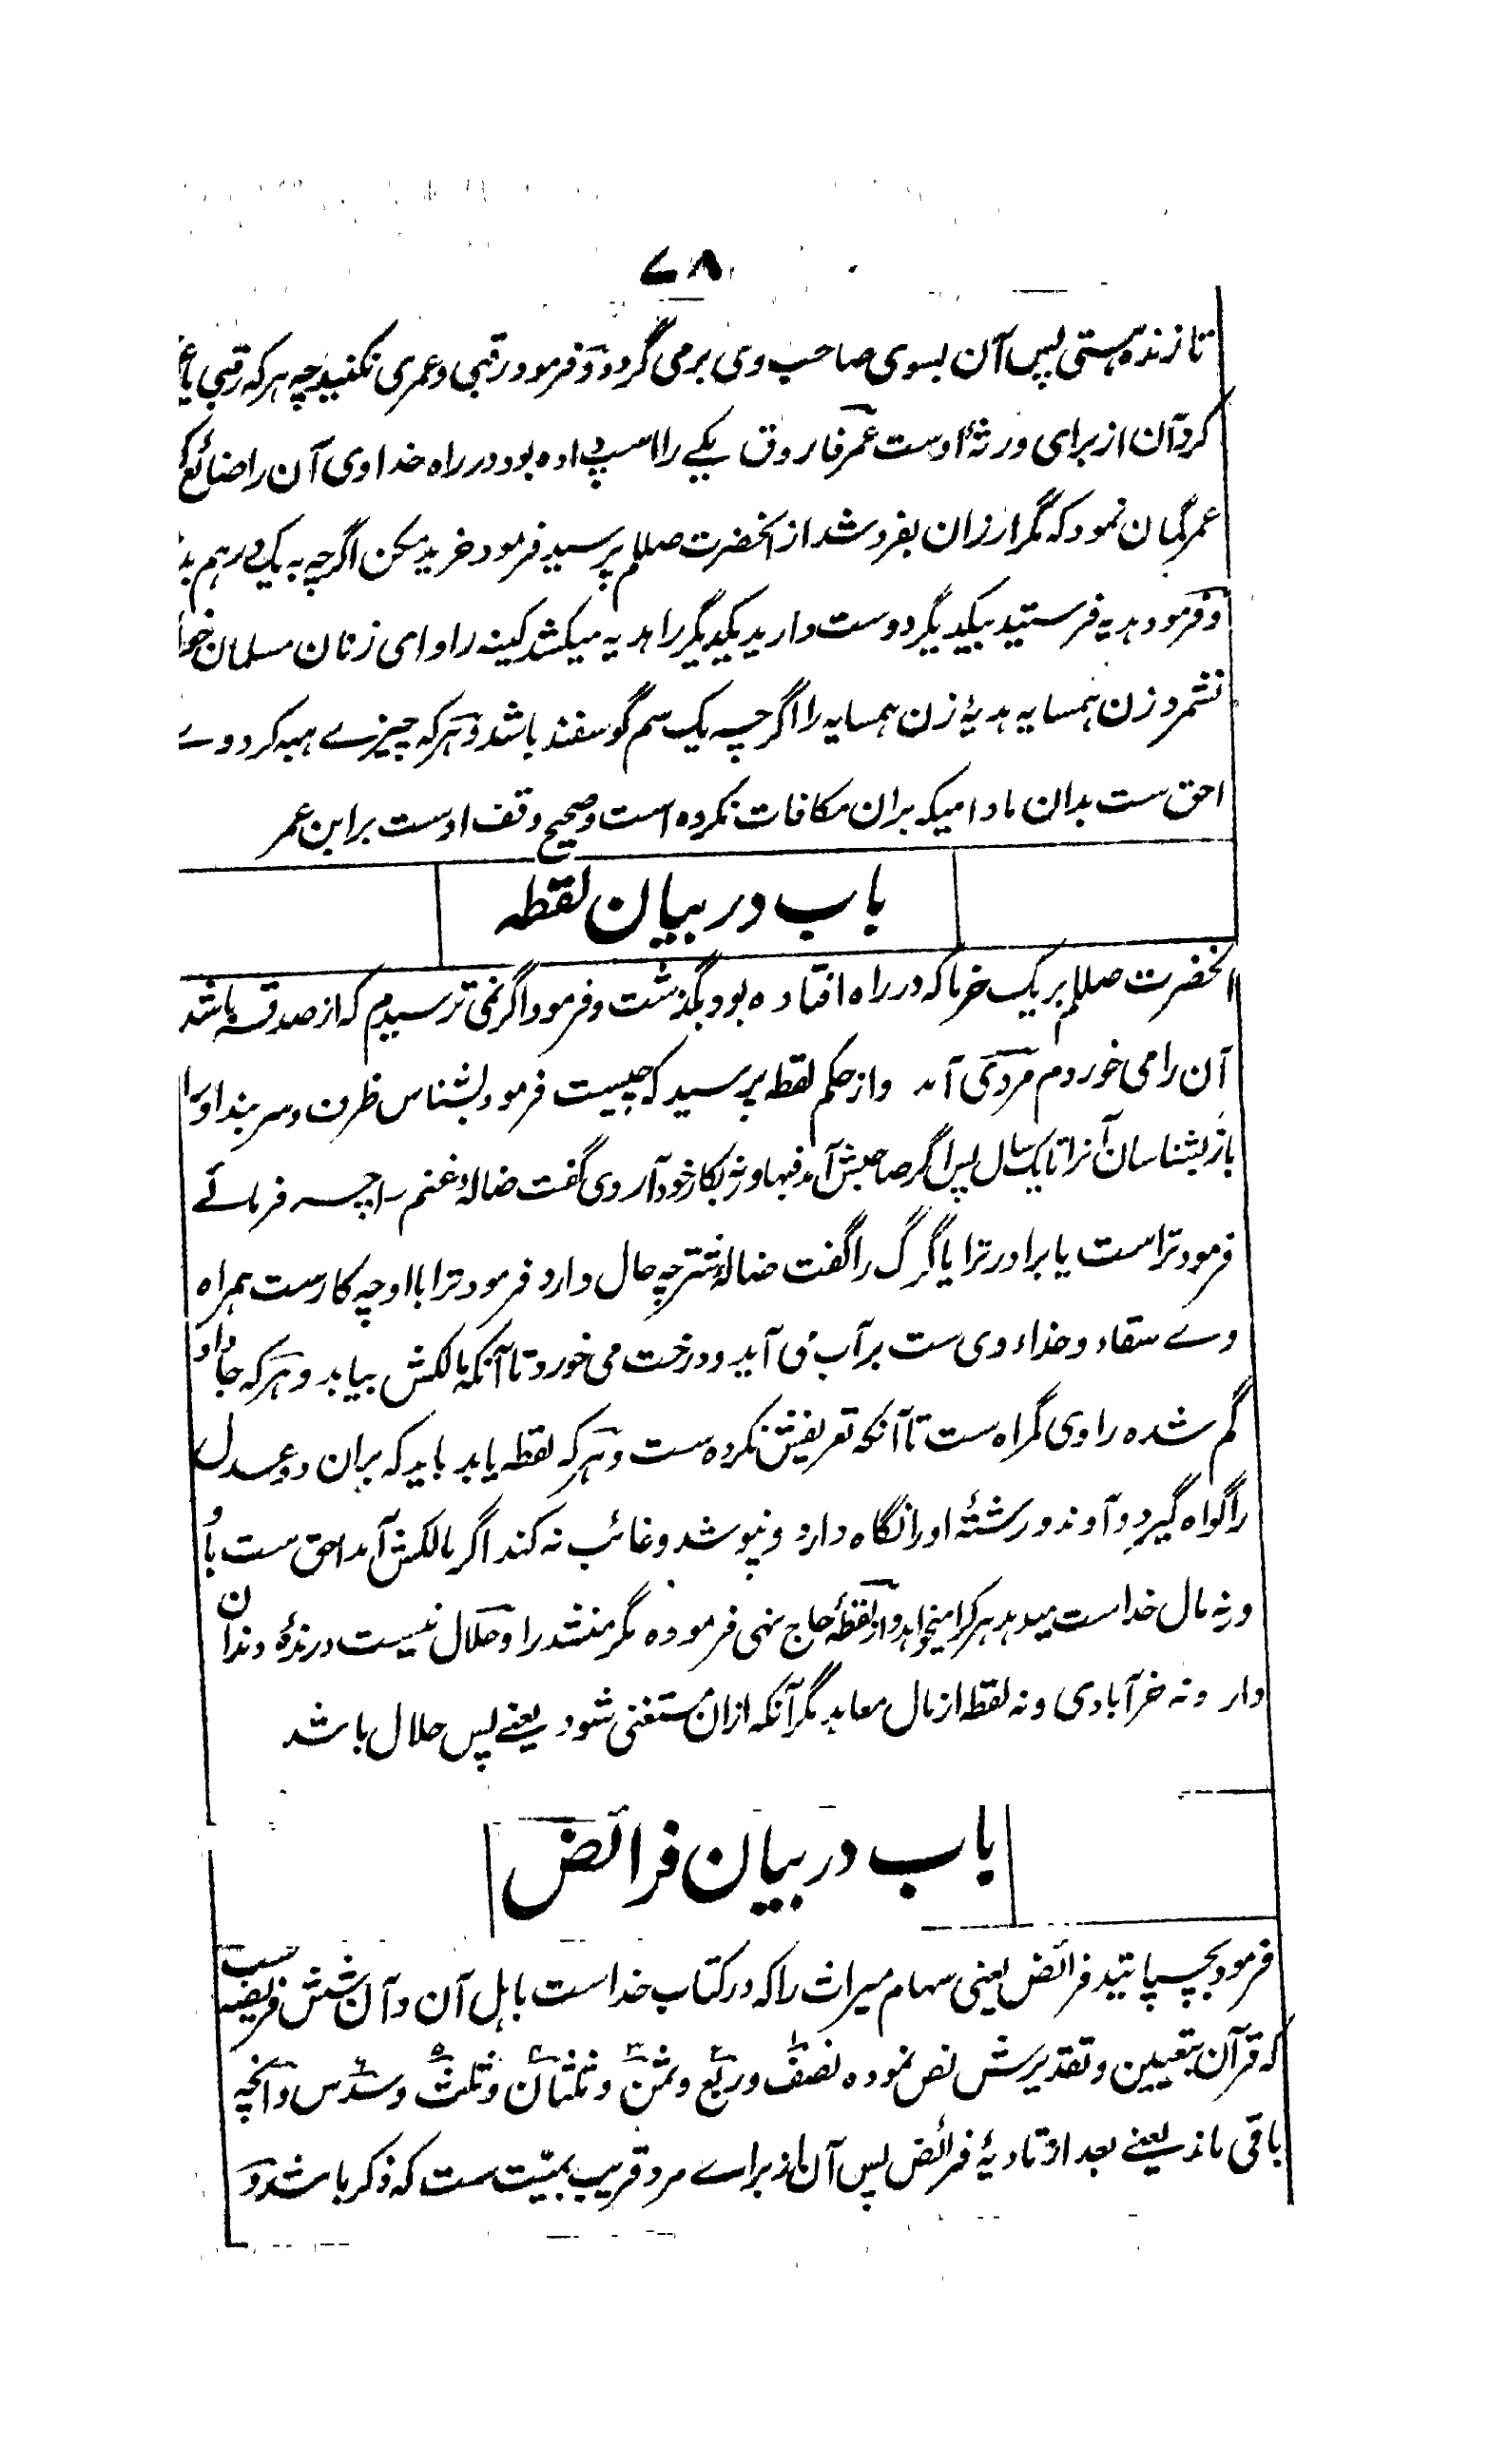 ۷۸
تا زنده هستی پس آن بسوی صاحب وی برمی گردد و فرمود رقبی و عمری نکنید چه هرکه رقبی یا
کرد آن از برای ورثۀ اوست عمر فاروق یکے را اسپ داده بود در راه خدا وی آن را ضائع
عمر گمان نمود که مگر ارزان بفروشد از آنحضرت صللم پرسید فرمود خرید مکن اگرچه به یک درهم
و فرمود هدیه فرستید بیکدیگر دوست دارید یکدیگر را هدیه میکشد کینه را و ای زنان مسلمان
نشمرد زن همسایه هدیۀ زن همسایه را اگرچه یک سم گوسفند باشد و هرکه چیزے هبه کرد وے
احق ست بدان مادامیکه بران مکافات نکرده است و صحیح وقف اوست بر ابن عمر
باب در بیان لقطه
آنحضرت صللم بریک خرما که در راه افتاده بود بگذشت و فرمود اگر نمی ترسیدم که از صدقه باشد
آن را می خوردم مردی آمد و از حکم لقطه پرسید که چیست فرمود بشناس ظرف و سربند او را
باز بشناسان آنرا تا یک سال پس اگر صاحبش آمد فبها ورنه بکار خود آر وی گفت ضالۂ غنم را چه فرمائے
فرمود تراست یا برادر ترا یا گرگ را گفت ضالۂ شتر چه حال دارد فرمود ترا با او چه کارست همراه
وے سقاء و حذاء وی ست بر آب می آید و درخت می خورد تا آنکه مالکش بیابد و هرکه جا داد
گم شده را وی گمراه ست تا آنکه تعریفش نکرده ست و هرکه لقطه یابد باید که بران دو عدل
را گواه گیرد و آوند و رشتۀ او را نگاه دارد و نپوشد و غائب نه کند اگر مالکش آمد احق ست باو
ورنه مال خداست میدهد هرکرا میخواهد و از لقطۀ حاج نهی فرموده مگر منشد را و حلال نیست درندۀ دندان
دار و نه خر آبادی و نه لقطه از مال معاهد مگر آنکه ازان مستغنی شود یعنے پس حلال باشد
باب در بیان فرائض
فرمود بچسپانید فرائض یعنی سهام میراث را که در کتاب خداست باهل آن و آن شش فریضه ست
که قرآن بتعیین و تقدیرش نص نموده نصف و ربع و ثمن و ثلثان و ثلث و سدس و آنچه
باقی ماند یعنے بعد از تادیۀ فرائض پس آن ماند براے مرد قریب بمیّت ست که ذکر باشد و